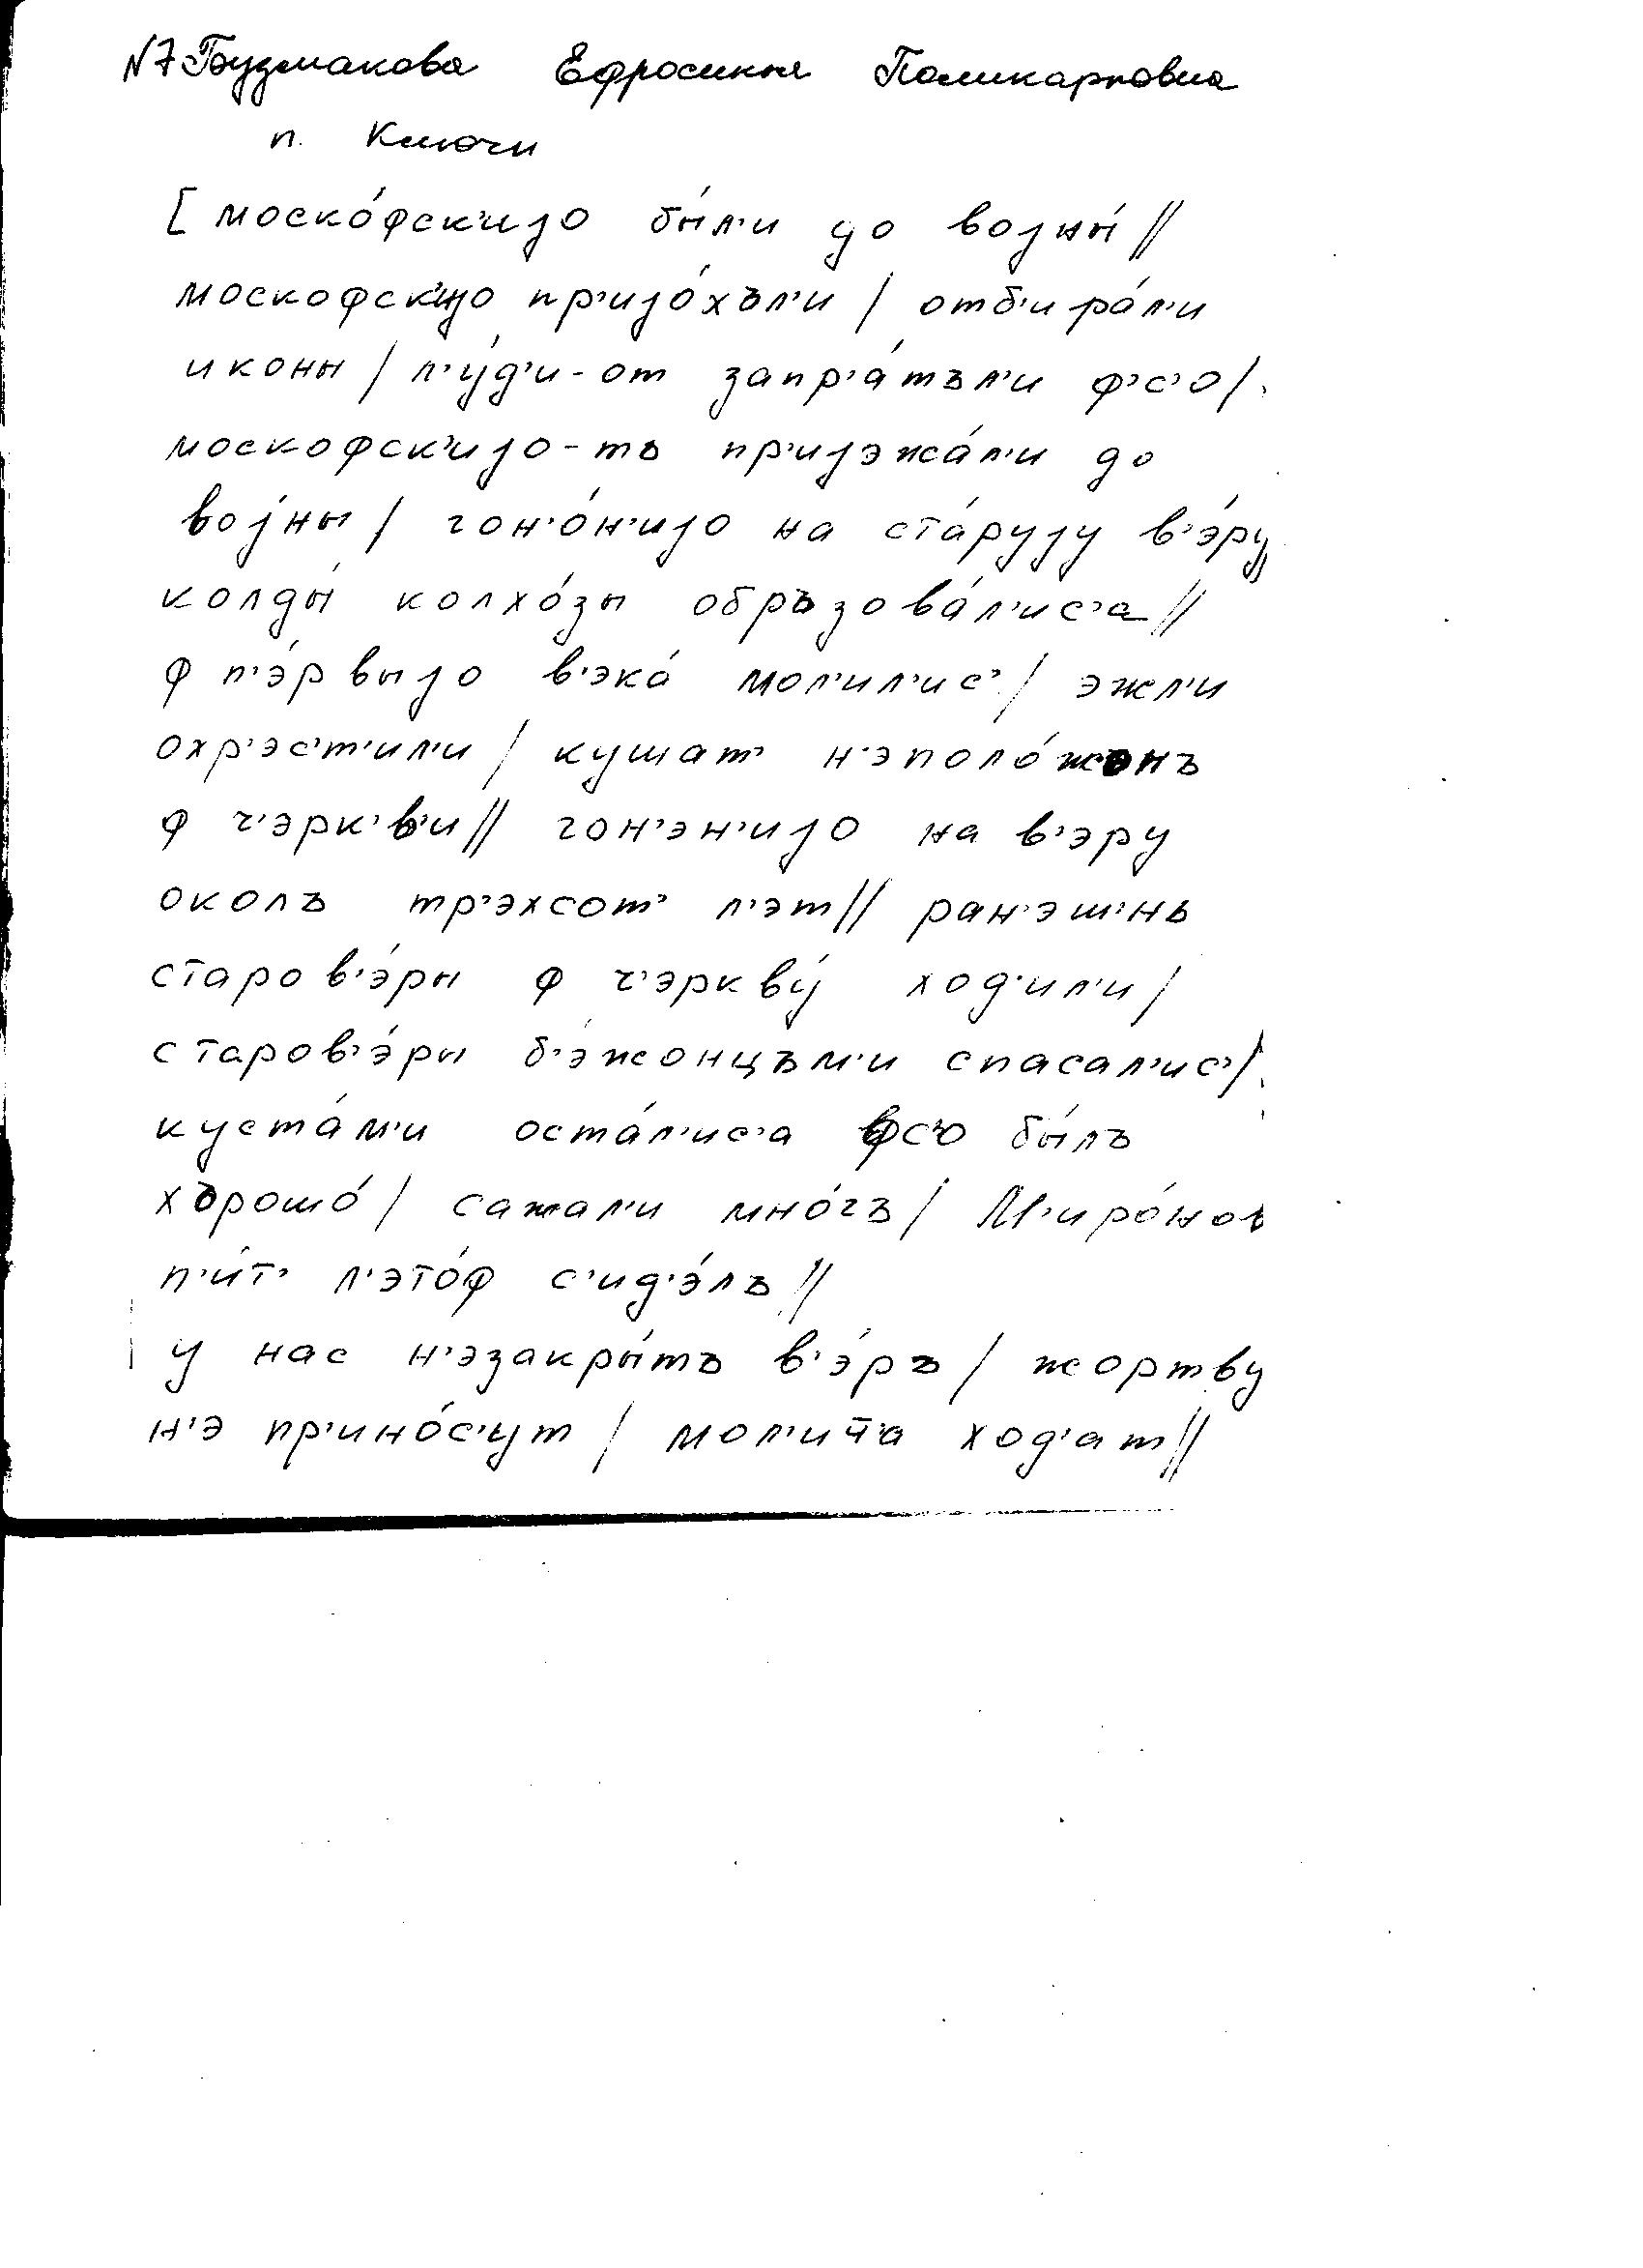 N7 Бузмакова Ефросинья Поликарповна
п. Ключи
[ моско́фск'иjо бы́л'и до воjны́ //
москофск'иjо пр'иjо́хъл'и / отб'ира́л'и
иконы / л'у́д'и-от запр'а́тъл'и ф'с'о /
москофск'иjо-тъ пр'иjэжа́л'и до
воjны́ / гон'о́н'иjо на ста́руjу в'э́ру //
колды́ колхо́зы обръзова́л'ис'а //
ф п'э́рвыjо в'эка́ мол'ил'ис' / эжл'и
охр'эс'т'ил'и / кушат' н'эполо́жонъ
ф ч'эрк'в'и // гон'эн'иjо на в'эру
околъ тр'эхсот' л'эт // ран'эш'нь
старов'э́ры ф ч'эркву́ ход'ил'и /
старов'э́ры б'э́жонцъм'и спасал'ис' /
куста́м'и оста́л'ис'а фс'о бы́лъ
хърошо́ / сажал'и мно́гъ / М'иро́нов
п'и́т' л'это́ф с'ид'э́лъ //
у нас н'эзакры́тъ в'э́ръ / жортву
н'э пр'ино́с'ут / мол'ит'а ход'ат //